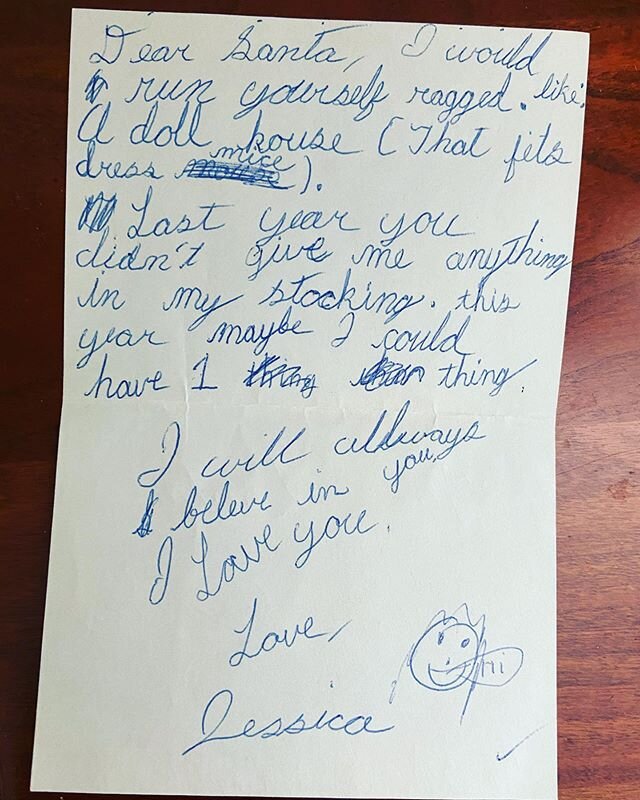 Dear Santa, I would
run yourself ragged. like.
A doll house (That fits
dress mice).
Last year you
didn't give me anything
in my stocking. this
year maybe I could
have 1 thing.
I will allways
beleve in you,
I Love you.
Love,
Jessica
Hi